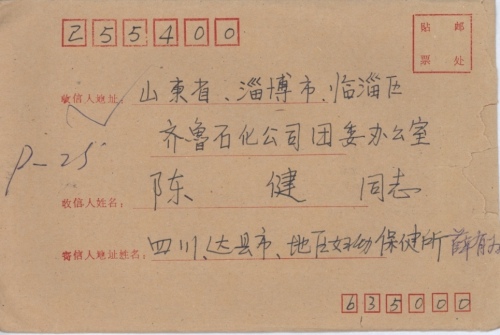 255400
贴 邮
票 处
收信人地址: 山東省、淄博市、临淄区
齐鲁石化公司团委办公室
P-25
收信人姓名: 陈 健 同志
寄信人地址姓名: 四川、达县市、地区妇幼保健所 薛
635000